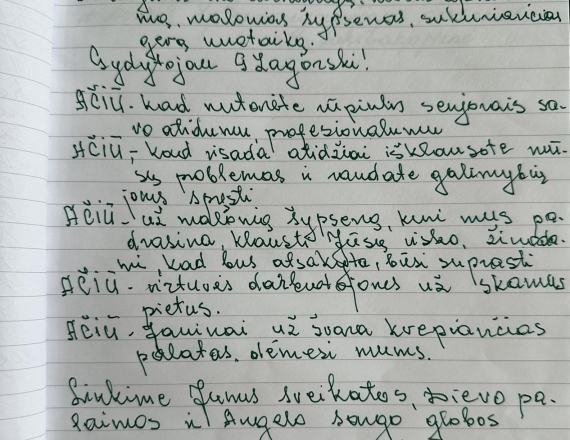 mą, malonias šypsenas, sukuriančias
gerą nuotaiką.
Gydytojau G Zagorski!
AČIŪ - kad nutarėte rūpintis senjorais sa-
vo atidumu, profesionalumu
AČIŪ, - kad visada atidžiai išklausote mū-
sų problemas ir randate galimybių
joms spręsti
AČIŪ - už malonią šypseną, kuri mus pa-
drąsina, klausti Jūsų visko, žinoda-
mi, kad bus atsakyta, būsi suprasti
AČIŪ - virtuvės darbuotojoms už skanius
pietus.
AČIŪ - Janinai už švarą kvepiančias
palatas, dėmesį mums.
Linkime Jums sveikatos, Dievo pa-
laimos ir Angelo sargo globos